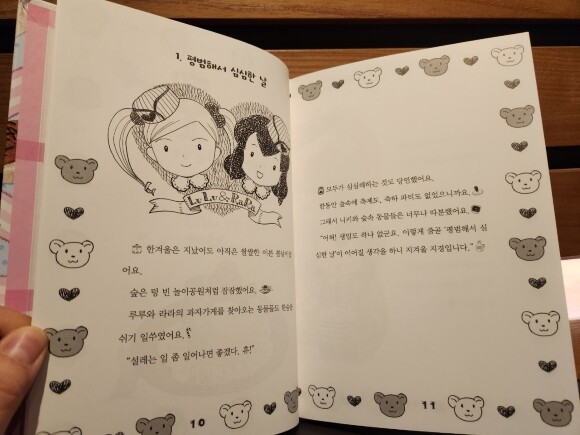 1. 평범해서 심심한 날
LuLu&RaRa
한겨울은 지났어도 아직은 쌀쌀한 이른 봄날이었
어요.
숲은 텅 빈 놀이공원처럼 잠잠했어요.
루루와 라라의 과자가게를 찾아오는 동물들도 한숨만
쉬기 일쑤였어요.
“설레는 일 좀 일어나면 좋겠다. 휴!”
10
모두가 심심해하는 것도 당연했어요.
한동안 숲속에 축제도, 축하 파티도 없었으니까요.
그래서 니키와 숲속 동물들은 너무나 따분했어요.
“어휴! 생일도 려나 없군요. 이렇게 줄곧 ‘평범해서 심
심한 날’이 이어질 생각을 하니 지겨울 지경입니다.”
11